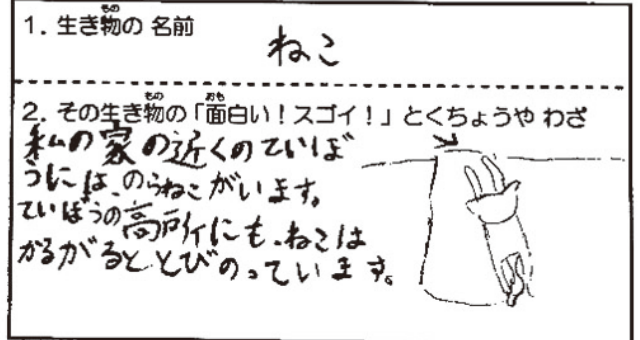 1. 生き物の 名前
ねこ
2. その生き物の「面白い!スゴイ!」とくちょうや わざ
私の家の近くのていぼ
うには、のらねこがいます。
ていぼうの高所にも、ねこは
かるがるととびのっています。